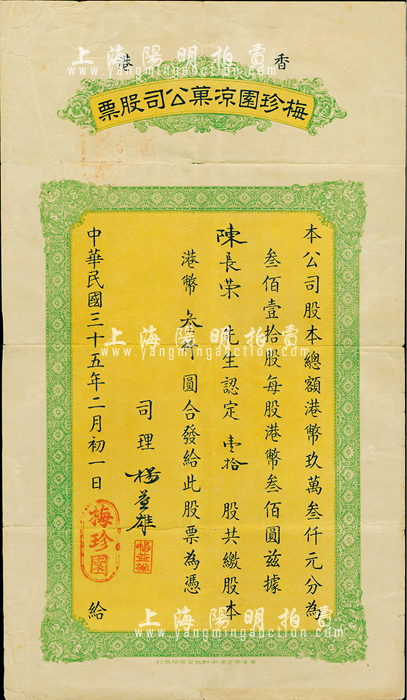 香港
梅珍園涼菓公司股票
本公司股本總額港幣玖萬叁仟元分為
叁佰壹拾股每股港幣叁佰圓茲據
陳長榮先生認定壹拾股共繳股本
港幣叁仟圓合發給此股票為憑
司理 楊益雄
楊益雄
中華民國三十五年二月初一日 給
梅珍園
上海陽明拍賣
www.yangmingauction.com
上海陽明拍賣
www.yangmingauction.com
上海陽明拍賣
www.yangmingauction.com